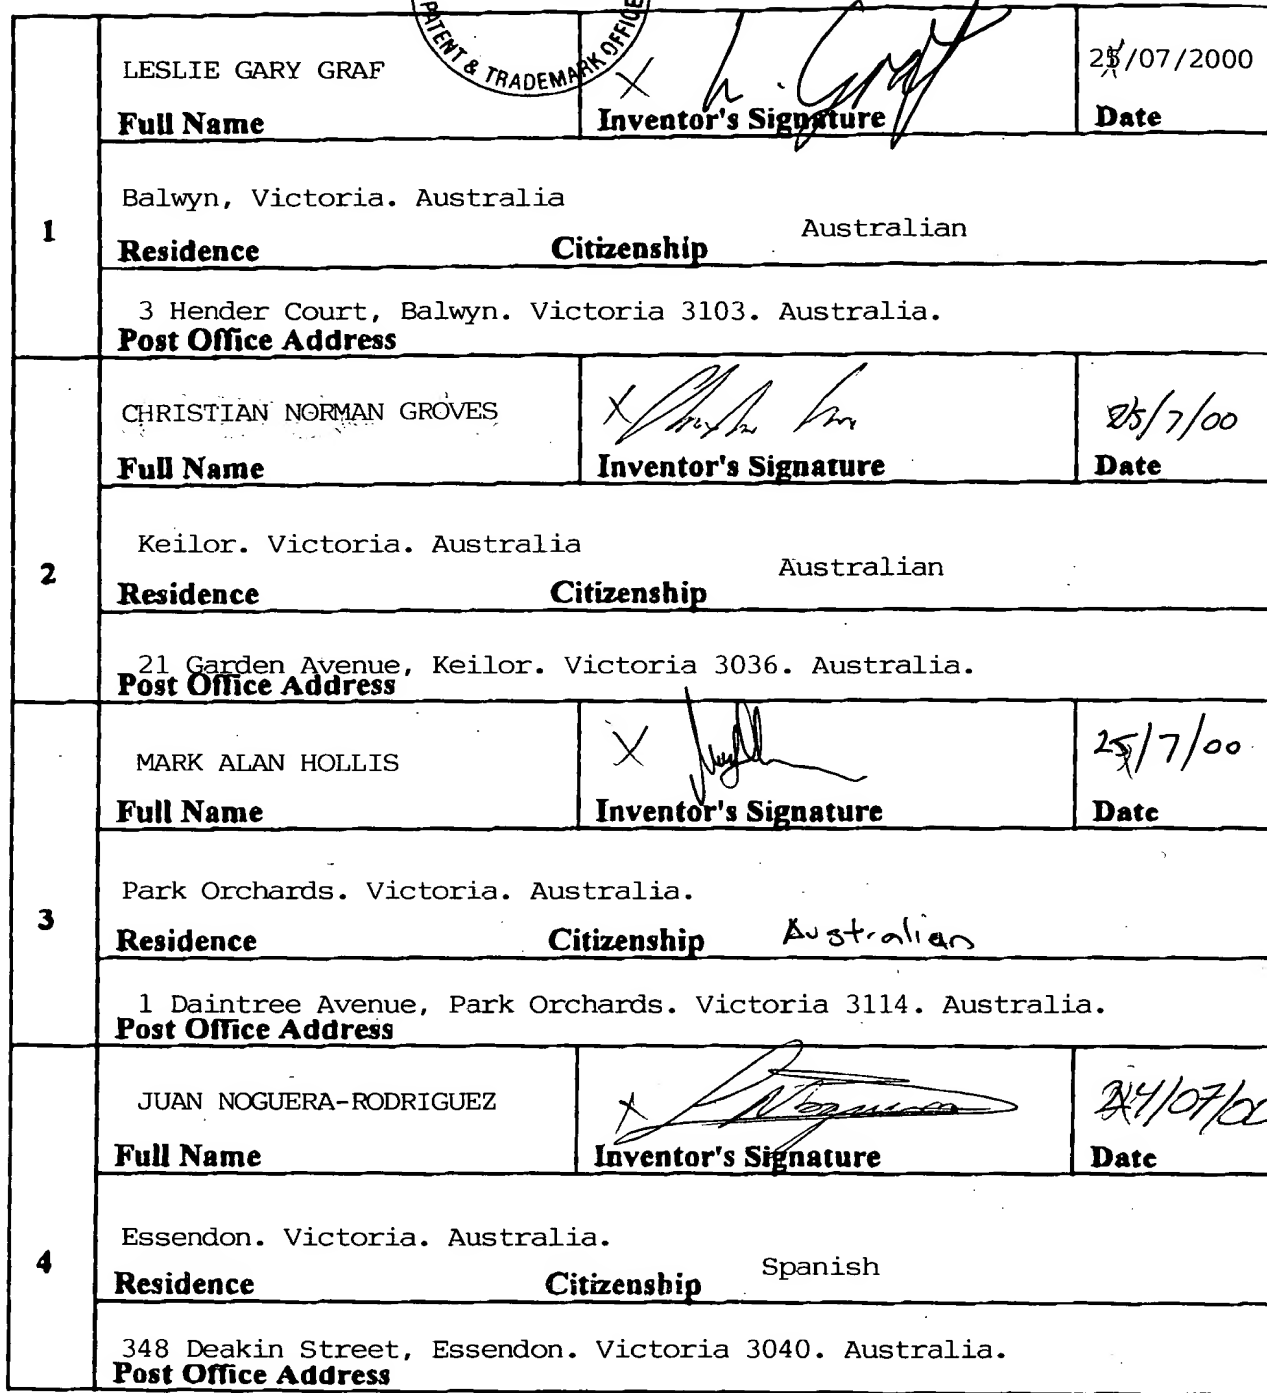 PATENT & TRADEMARK OFFICE
LESLIE GARY GRAF X L. Graf 25/07/2000
Full Name Inventor's Signature Date
Balwyn, Victoria. Australia
1 Australian
Residence Citizenship
3 Hender Court, Balwyn. Victoria 3103. Australia.
Post Office Address
CHRISTIAN NORMAN GROVES X 25/7/00
Full Name Inventor's Signature Date
Keilor. Victoria. Australia
2 Australian
Residence Citizenship
21 Garden Avenue, Keilor. Victoria 3036. Australia.
Post Office Address
MARK ALAN HOLLIS X 25/7/00
Full Name Inventor's Signature Date
Park Orchards. Victoria. Australia.
3 Residence Citizenship Australian
1 Daintree Avenue, Park Orchards. Victoria 3114. Australia.
Post Office Address
JUAN NOGUERA-RODRIGUEZ X 24/07/00
Full Name Inventor's Signature Date
Essendon. Victoria. Australia.
4 Spanish
Residence Citizenship
348 Deakin Street, Essendon. Victoria 3040. Australia.
Post Office Address